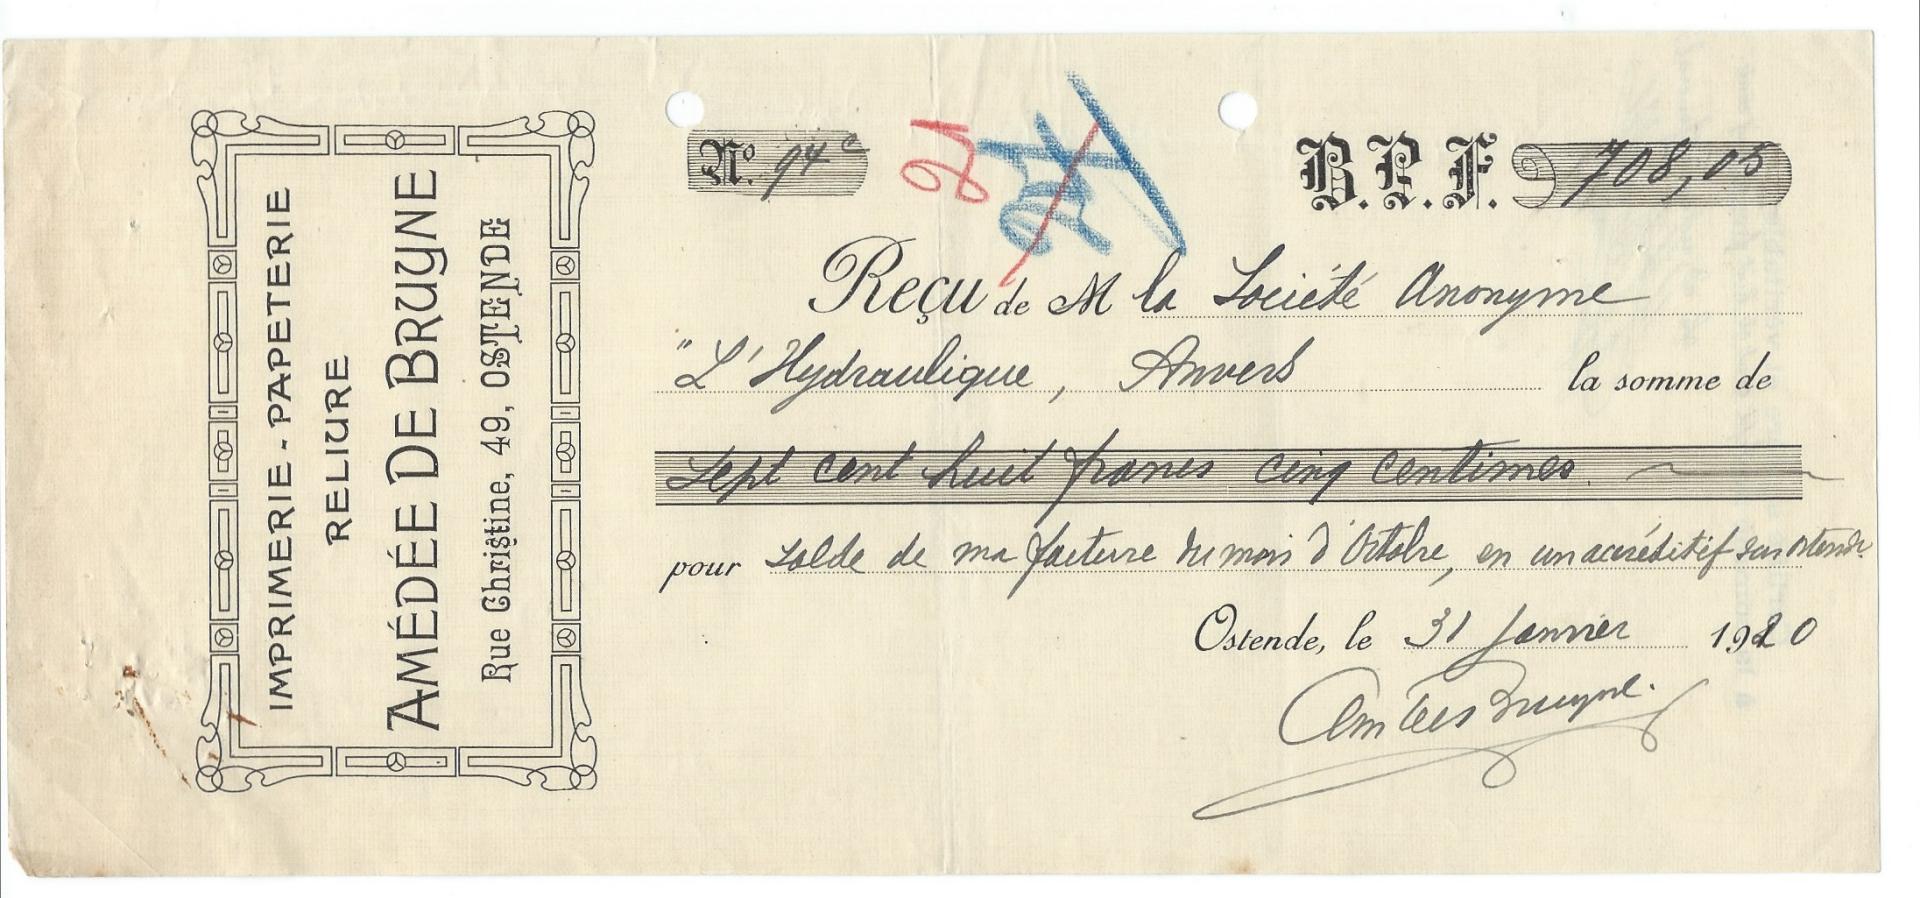 IMPRIMERIE - PAPETERIE
RELIURE
AMÉDÉE DE BRUYNE
Rue Christine, 49, OSTENDE
Nº. 94 c
B.P.F. 708,05
Reçu de M la Société Anonyme
"L'Hydraulique, Anvers la somme de
Sept cent huit francs cinq centimes
pour solde de ma facture du mois d'Octobre, en un accréditif sur Ostende
Ostende, le 31 Janvier 1920